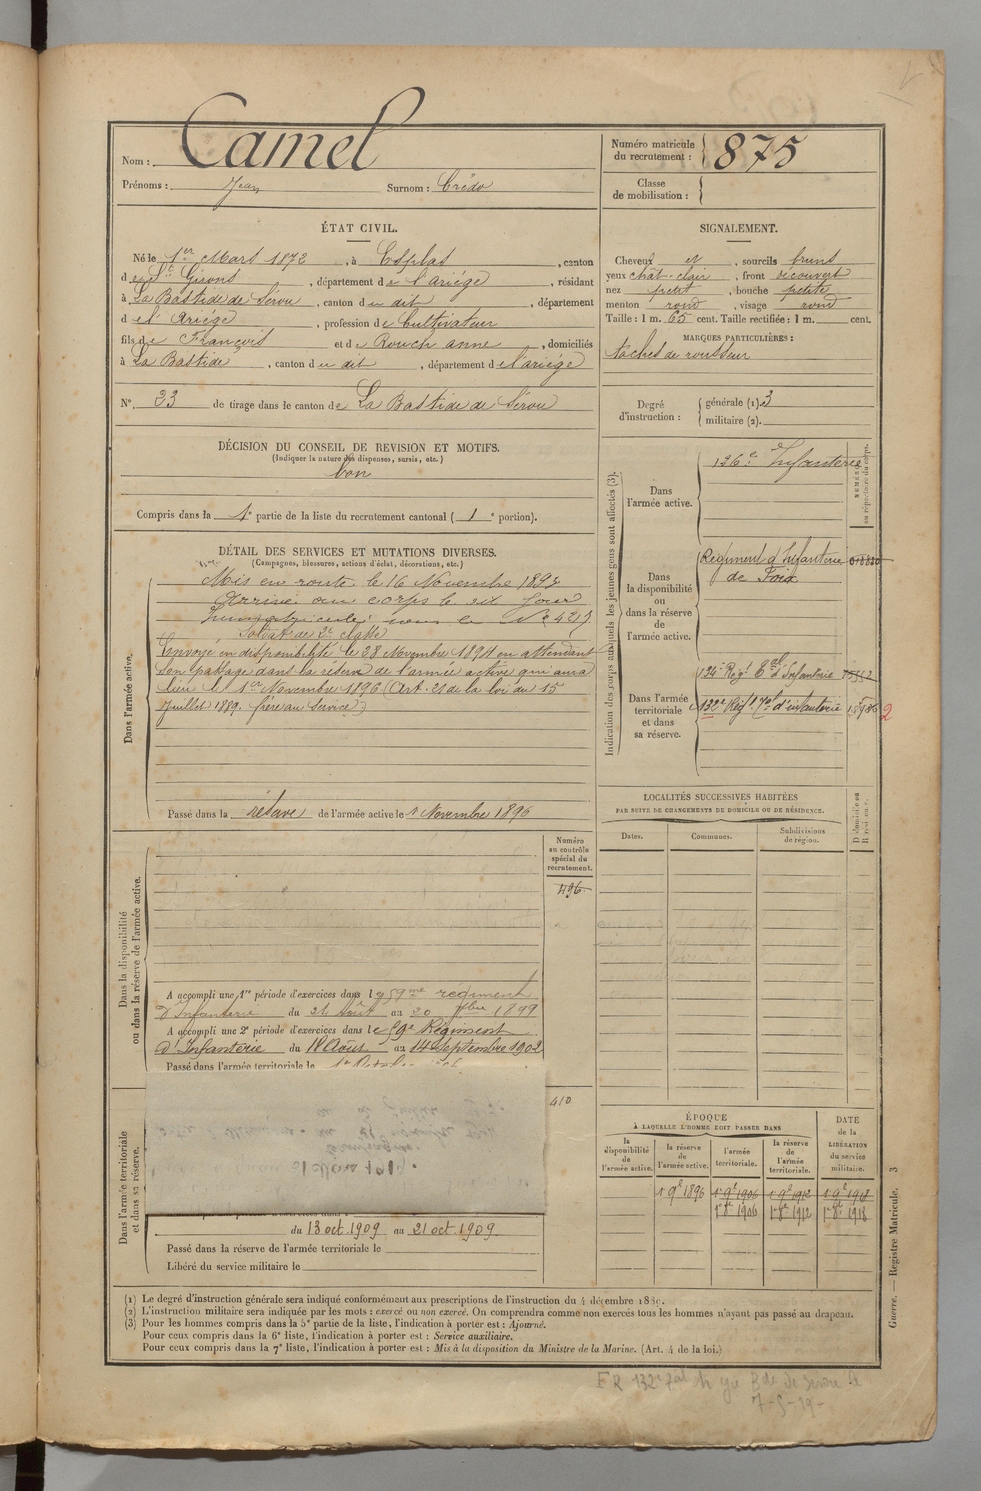 Nom : Camel
Prénoms : Jean Surnom : Crédo
Numéro matricule du recrutement : 875
Classe de mobilisation :
ÉTAT CIVIL.
Né le 1er Mars 1872, à Esplas, canton
de St Girons, département de l'ariége, résidant
à La Bastide de Sérou, canton du dit, département
de l'Ariége, profession de Cultivateur
fils de François et de Rouch anne, domiciliés
à La Bastide, canton du dit, département de l'ariége
N°. 23 de tirage dans le canton de La Bastide de Sérou
SIGNALEMENT.
Cheveux et, sourcils bruns
yeux chât-clair, front découvert
nez petit, bouche petite
menton rond, visage rond
Taille : 1 m. 65 cent. Taille rectifiée : 1 m. cent.
MARQUES PARTICULIÈRES :
taches de rousseur
Degré d'instruction : générale (1). 3
militaire (2).
DÉCISION DU CONSEIL DE REVISION ET MOTIFS.
(Indiquer la nature des dispenses, sursis, etc.)
bon
Compris dans la 1e partie de la liste du recrutement cantonal ( 1e portion).
DÉTAIL DES SERVICES ET MUTATIONS DIVERSES.
(Campagnes, blessures, actions d'éclat, décorations, etc.)
Dans l'armée active.
Mis en route le 16 Novembre 1893
Arrivé au corps le dit jour
Immatriculé sous le N° 4217
Soldat de 2e classe
Envoyé en disponibilité le 28 Novembre 1894 en attendant
son passage dans la réserve de l'armée active qui aura
lieu le 1er Novembre 1896 (Art. 21 de la loi du 15
Juillet 1889. frère au service)
Passé dans la réserve de l'armée active le 1 Novembre 1896
Indication des corps auxquels les jeunes gens sont affectés (3).
NUMÉRO au répertoire du corps.
Dans l'armée active.
136e Infanterie
Dans la disponibilité ou dans la réserve de l'armée active.
Régiment d'Infanterie
de Foix
Dans l'armée territoriale et dans sa réserve.
134e Régt Tal d'Infanterie
132e Régt Tal d'infanterie
2
LOCALITÉS SUCCESSIVES HABITÉES
PAR SUITE DE CHANGEMENTS DE DOMICILE OU DE RÉSIDENCE.
Dates. Communes. Subdivisions de région. D domicile ou R résidence.
Dans la disponibilité ou dans la réserve de l'armée active.
Numéro au contrôle spécial du recrutement.
496
A accompli une 1re période d'exercices dans le 59me régiment
d'Infanterie du 24 Août au 20 7bre 1899
A accompli une 2e période d'exercices dans le 59e Régiment
d'Infanterie du 18 Août au 14 Septembre 1902
Passé dans l'armée territoriale le
Dans l'armée territoriale et dans sa réserve.
410
du 13 oct. 1909 au 21 oct. 1909
Passé dans la réserve de l'armée territoriale le
Libéré du service militaire le
ÉPOQUE
À LAQUELLE L'HOMME DOIT PASSER DANS
la disponibilité de l'armée active. la réserve de l'armée active. l'armée territoriale. la réserve de l'armée territoriale.
DATE de la LIBÉRATION du service militaire.
1 9e 1896 1 9e 1906 1 9e 1912 1 9e 1918
1er 8e 1906 1er 8e 1912 1er 8e 1918
(1) Le degré d'instruction générale sera indiqué conformément aux prescriptions de l'instruction du 4 décembre 1889.
(2) L'instruction militaire sera indiquée par les mots : exercé ou non exercé. On comprendra comme non exercés tous les hommes n'ayant pas passé au drapeau.
(3) Pour les hommes compris dans la 5e partie de la liste, l'indication à porter est : Ajourné.
Pour ceux compris dans la 6e liste, l'indication à porter est : Service auxiliaire.
Pour ceux compris dans la 7e liste, l'indication à porter est : Mis à la disposition du Ministre de la Marine. (Art. 4 de la loi.)
Guerre. — Registre Matricule. 3
7-5-19-